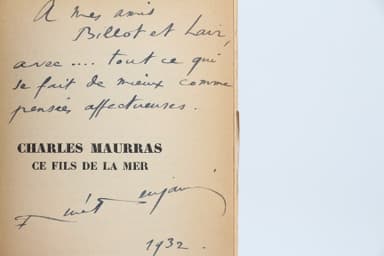 A mes amis
Billot et Lair,
avec .... tout ce qui
se fait de mieux comme
pensées affectueuses.
CHARLES MAURRAS
CE FILS DE LA MER
1932.